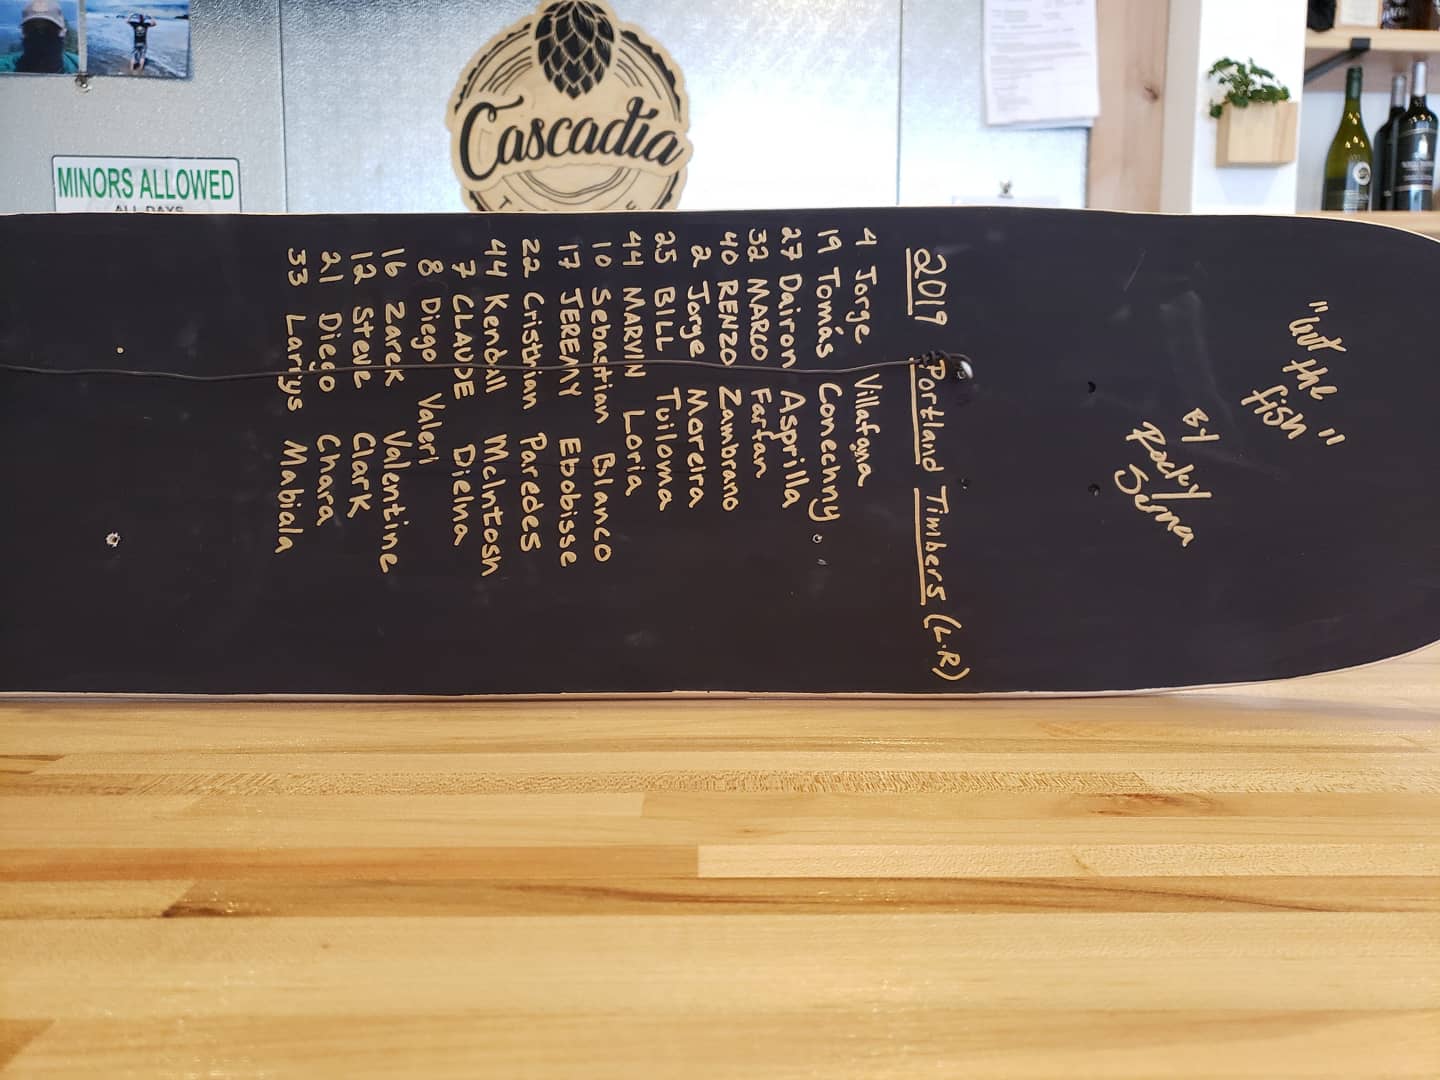 Cascadia
MINORS ALLOWED
ALL DAYS
"Wut the
fish"
By
Rocky
Serna
2019 Portland Timbers (L-R)
4 Jorge Villafaña
19 Tomás Conechny
27 Dairon Asprilla
32 MARCO Farfan
40 RENZO Zambrano
2 Jorge Moreira
25 BILL Tuiloma
44 MARVIN Loria
10 Sebastian Blanco
17 JEREMY Ebobisse
22 Cristhian Paredes
44 Kendall McIntosh
7 CLAUDE Dielna
8 Diego Valeri
16 Zarek Valentine
12 Steve Clark
21 Diego Chara
33 Larrys Mabiala